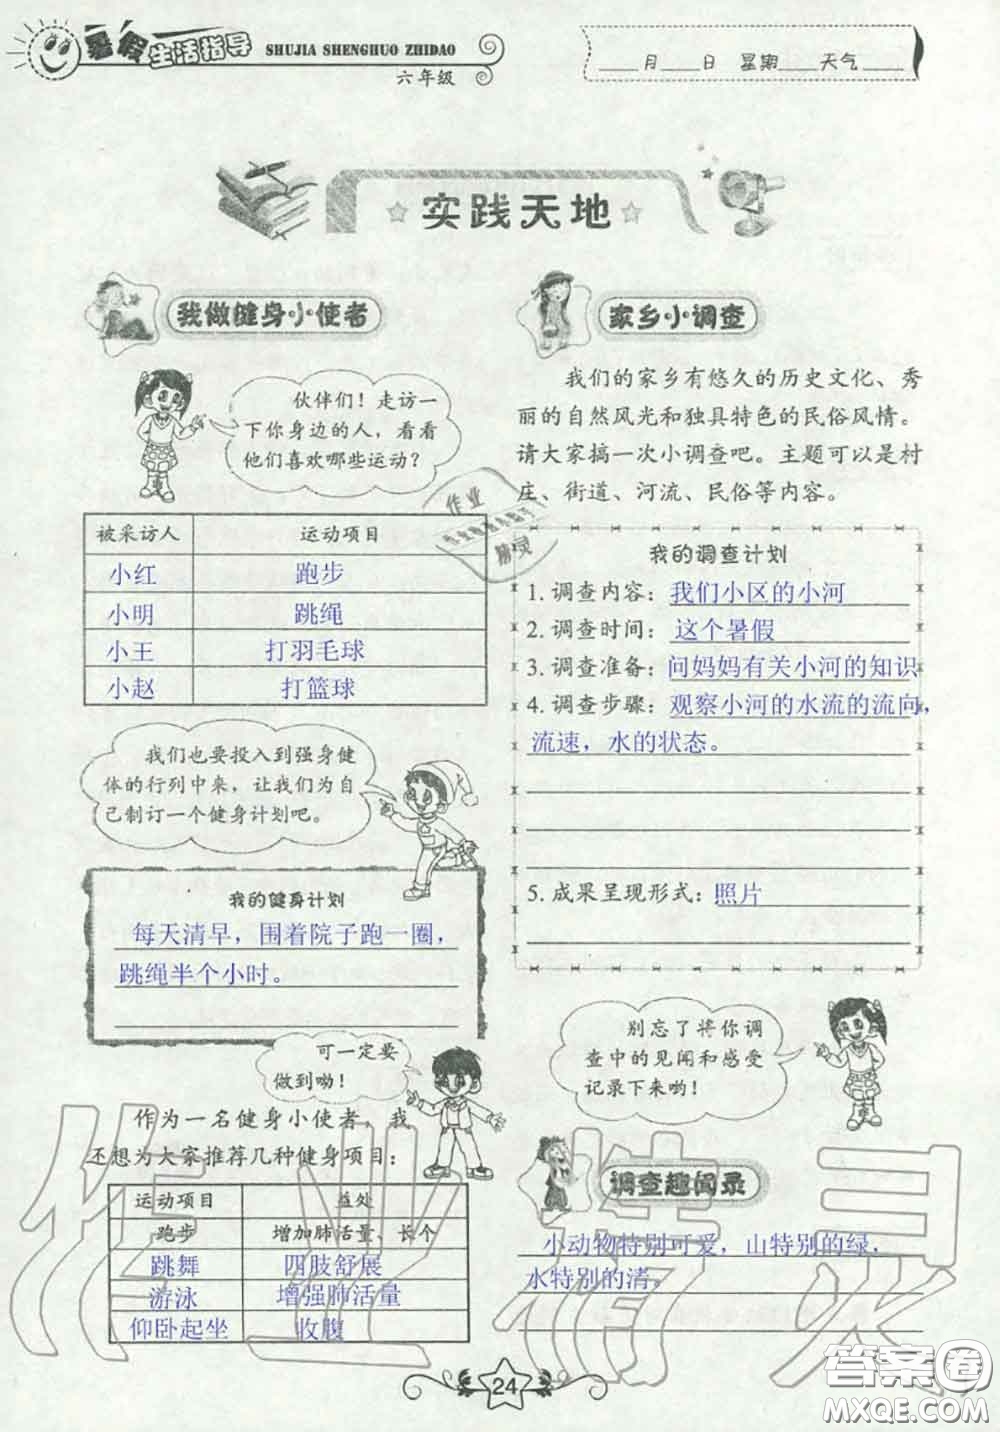 暑假生活指导
SHUJIA SHENGHUO ZHIDAO
六年级
____月____日 星期____天气____
实践天地
我做健身小使者
伙伴们！走访一
下你身边的人，看看
他们喜欢哪些运动？
被采访人 运动项目
小红 跑步
小明 跳绳
小王 打羽毛球
小赵 打篮球
我们也要投入到强身健
体的行列中来，让我们为自
己制订一个健身计划吧。
我的健身计划
每天清早，围着院子跑一圈，
跳绳半个小时。
可一定要
做到呦！
作为一名健身小使者，我
还想为大家推荐几种健身项目：
运动项目 益处
跑步 增加肺活量、长个
跳舞 四肢舒展
游泳 增强肺活量
仰卧起坐 收腹
家乡小调查
我们的家乡有悠久的历史文化、秀
丽的自然风光和独具特色的民俗风情。
请大家搞一次小调查吧。主题可以是村
庄、街道、河流、民俗等内容。
我的调查计划
1. 调查内容：我们小区的小河
2. 调查时间：这个暑假
3. 调查准备：问妈妈有关小河的知识
4. 调查步骤：观察小河的水流的流向，
流速，水的状态。
5. 成果呈现形式：照片
别忘了将你调
查中的见闻和感受
记录下来哟！
调查趣闻录
小动物特别可爱，山特别的绿，
水特别的清。
24
作业
精灵
作业精灵
答案圈
MXQE.COM